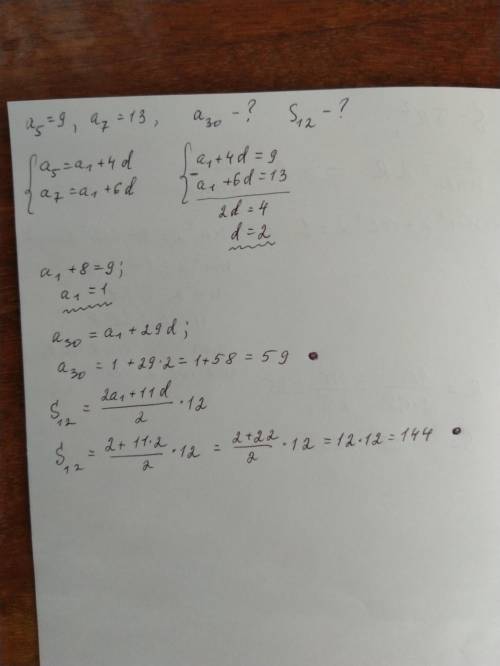 a₅=9, a₇=13, a₃₀-? S₁₂-?
{a₅=a₁+4d {a₁+4d=9
{a₇=a₁+6d -{a₁+6d=13
2d=4
d=2
a₁+8=9;
a₁=1
a₃₀=a₁+29d;
a₃₀=1+29·2=1+58=59
S₁₂=(2a₁+11d)/2·12
S₁₂=(2+11·2)/2·12=(2+22)/2·12=12·12=144